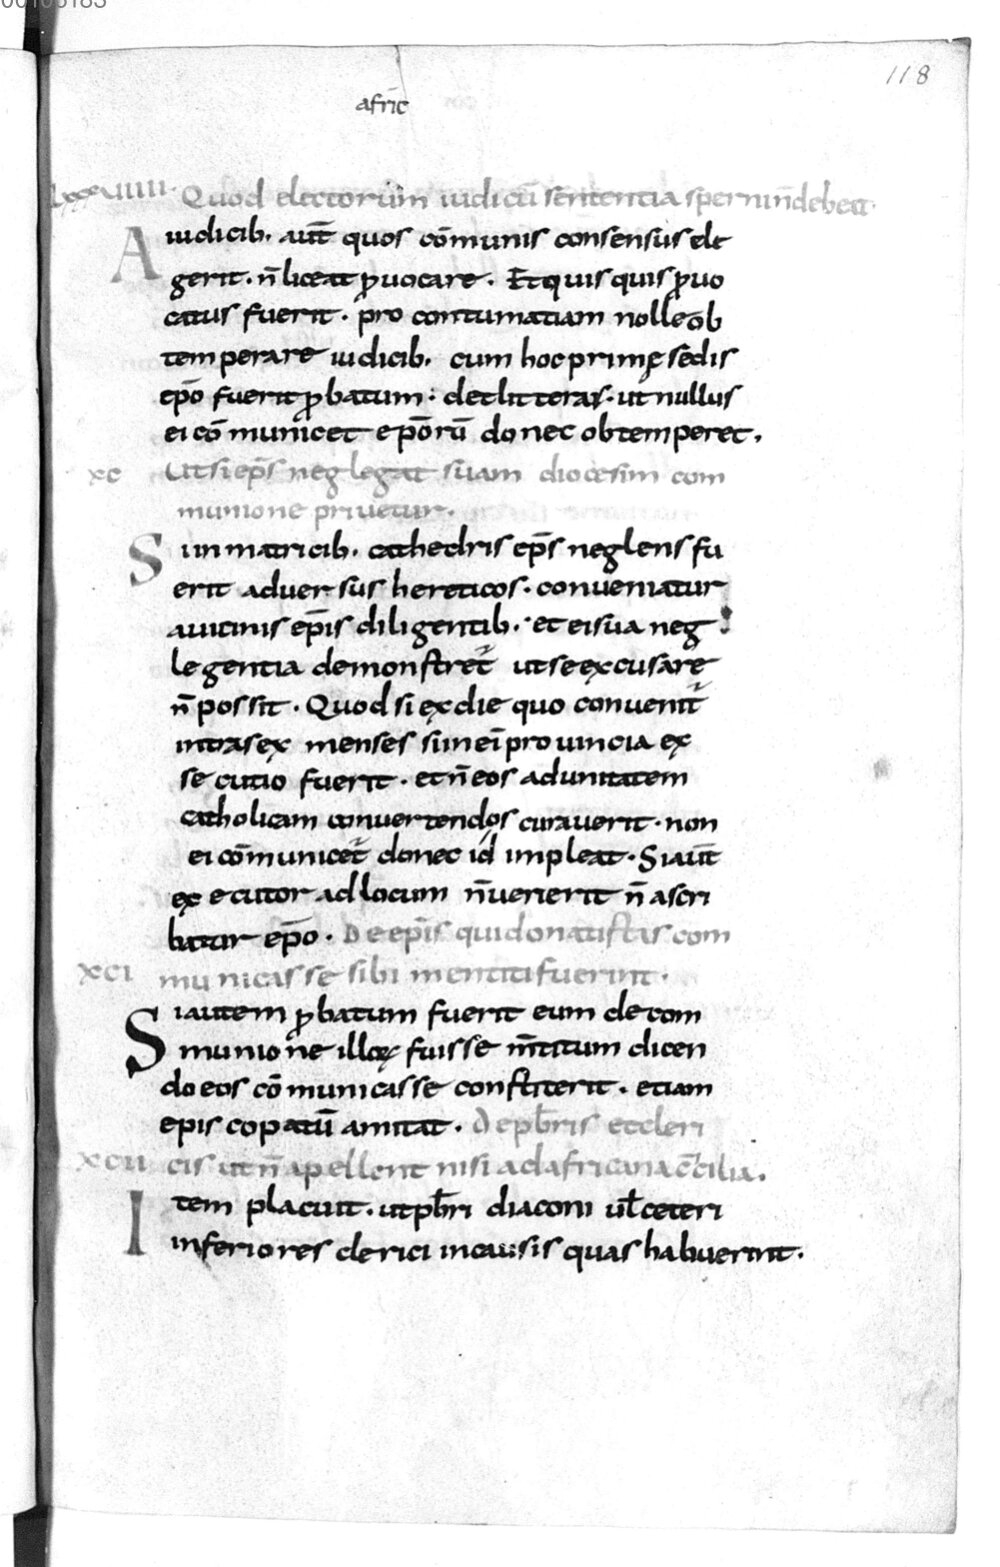 118
afric̄
lxxxviiii. Quod electorum iudicū sententia sperni n̄ debeat.
A iudicib. aut̄ quos cōmunis consensus ele
gerit. n̄ liceat ꝓuocare. Et quis quis ꝓuo
catus fuerit. pro contumatiam nolle ob
temperare iudicib. cum hoc primę sedis
ep̄o fuerit ꝓbatum: det litteras. ut nullus
ei cōmunicet ep̄orū donec obtemperet.
xc Ut si ep̄s neglegat suam diocesim com
munione priuetur.
S i in matricib. cathedris ep̄s neglens fu
erit aduersus hereticos. conueniatur
a uicinis ep̄is diligentib. et ei sua neg
legentia demonstret ut se excusare
n̄ possit. Quod si ex die quo conuenit
intra sex menses si in ei prouincia ex
secutio fuerit. et n̄ eos ad unitatem
catholicam conuertendos curauerit. non
ei cōmunicet donec id impleat. Si aut̄
executor ad locum n̄ uenerit n̄ ascri
batur ep̄o. De ep̄is qui donatistas com
xci municasse sibi mentiti fuerint.
S i autem ꝓbatum fuerit eum de com
munione illox fuisse m̄titum dicen
do eos cōmunicasse constiterit. etiam
episcopatū amitat. De pb̄ris et cleri
xcii cis ut n̄ apellent nisi ad africana c̄cilia.
I tem placuit. ut pb̄ri diaconi ul̄ ceteri
inferiores clerici in causis quas habuerint.